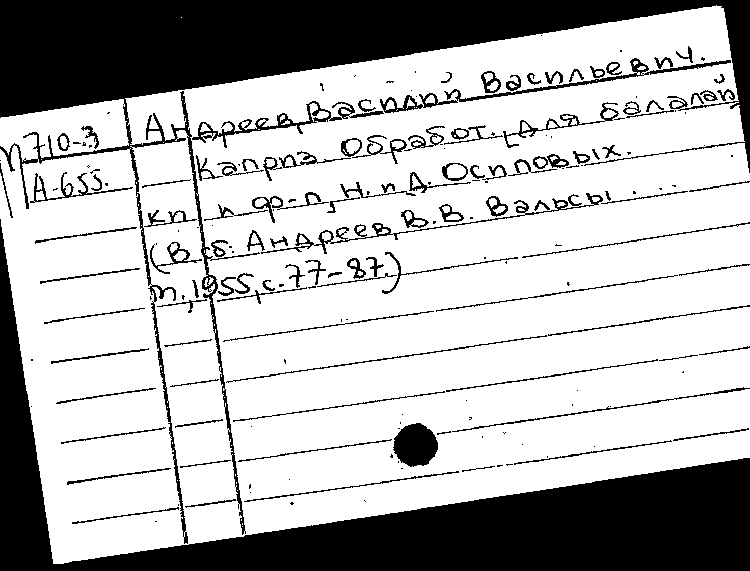 М710-3
А-655.
Андреев, Василий Васильевич.
Каприз. Обработ. [для балалай
ки и ф-п, Н. и А. Осиповых.
(В сб: Андреев, В.В. Вальсы...
М., 1955, с. 77-87.)